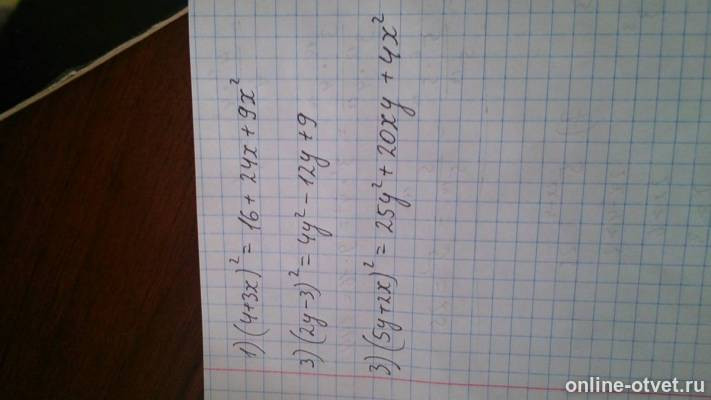 1) (4+3x)² = 16 + 24x + 9x²
3) (2y-3)² = 4y² - 12y + 9
3) (5y+2x)² = 25y² + 20xy + 4x²
online-otvet.ru